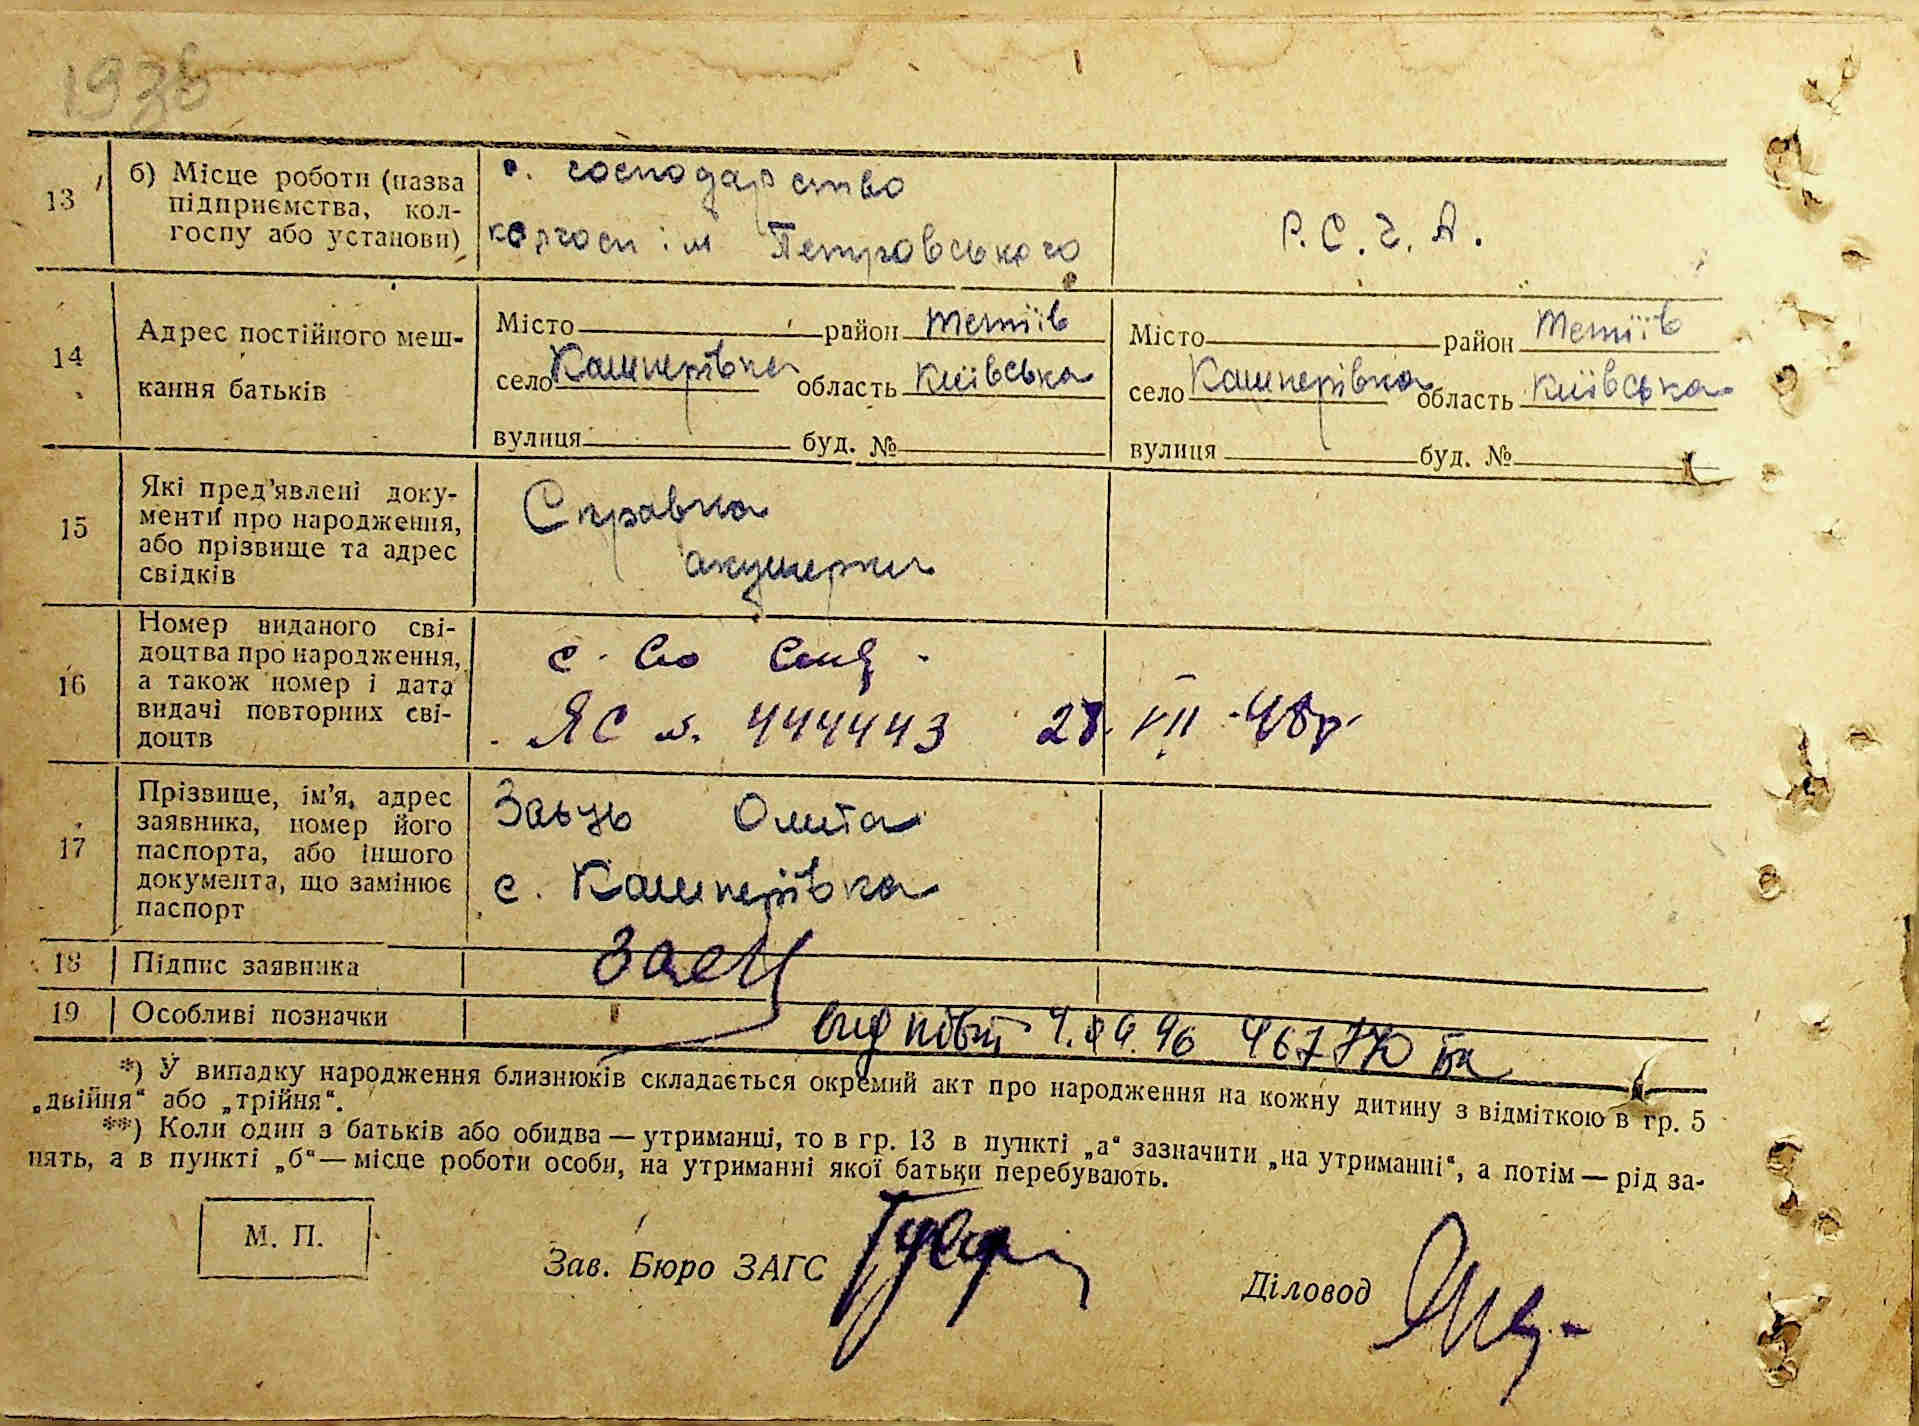 193б
13
б) Місце роботи (назва
підприємства, кол-
госпу або установи)
с. господарство
колгосп ім Петровського
Р. С. Ч. А.
14
Адрес постійного меш-
кання батьків
Місто район Тетіїв
село Кашперівка область Київська
вулиця буд. №
Місто район Тетіїв
село Кашперівка область Київська
вулиця буд. №
15
Які пред’явлені доку-
менти про народження,
або прізвище та адрес
свідків
Справка
акушерки
16
Номер виданого сві-
доцтва про народження,
а також номер і дата
видачі повторних сві-
доцтв
ЯС №. 444443 28. VII -48р.
17
Прізвище, ім’я, адрес
заявника, номер його
паспорта, або іншого
документа, що замінює
паспорт
Заьць
с. Кашперівка
18
Підпис заявника
Заец
19
Особливі позначки
вид повт 4.04.96 46777
*) У випадку народження близнюків складається окремий акт про народження на кожну дитину з відміткою в гр. 5
„двійня“ або „трійня“.
**) Коли один з батьків або обидва — утриманці, то в гр. 13 в пункті „а“ зазначити „на утриманні“, а потім — рід за-
нять, а в пункті „б“ — місце роботи особи, на утриманні якої батьки перебувають.
М. П.
Зав. Бюро ЗАГС
Діловод